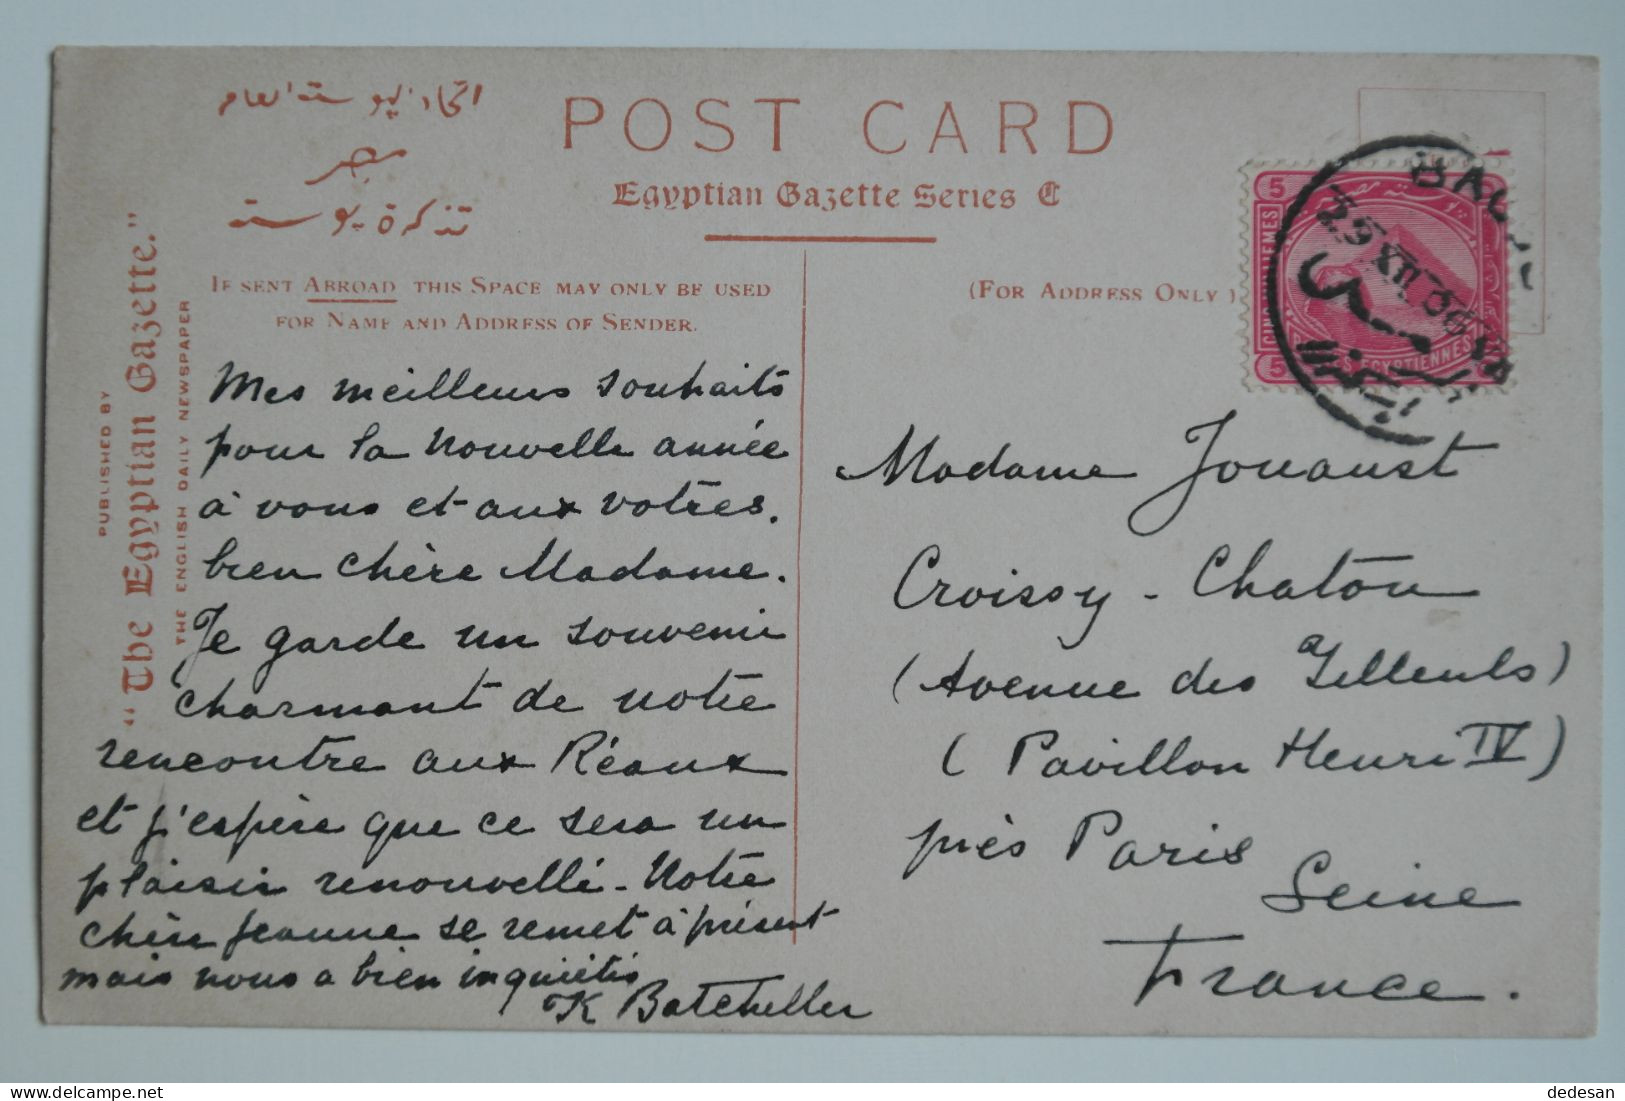 اتحاد بوسته العام
مصر
تذكرة بوسته
POST CARD
Egyptian Gazette Series C
PUBLISHED BY
"The Egyptian Gazette."
THE ENGLISH DAILY NEWSPAPER
IF SENT ABROAD THIS SPACE MAY ONLY BE USED
FOR NAME AND ADDRESS OF SENDER.
(FOR ADDRESS ONLY)
5
5
5
29 XII 06
Mes meilleurs souhaits
pour la nouvelle année
à vous et aux votres.
bien chère Madame.
Je garde un souvenir
charmant de notre
rencontre aux Réaux
et j'espère que ce sera un
plaisir renouvellé - Notre
chère Jeanne se remet à présent
mais nous a bien inquiétés
K Batcheller
Madame Jouaust
Croissy - Chatou
(Avenue des Tilleuls)
(Pavillon Henri IV)
près Paris
Seine
France.
dedesan